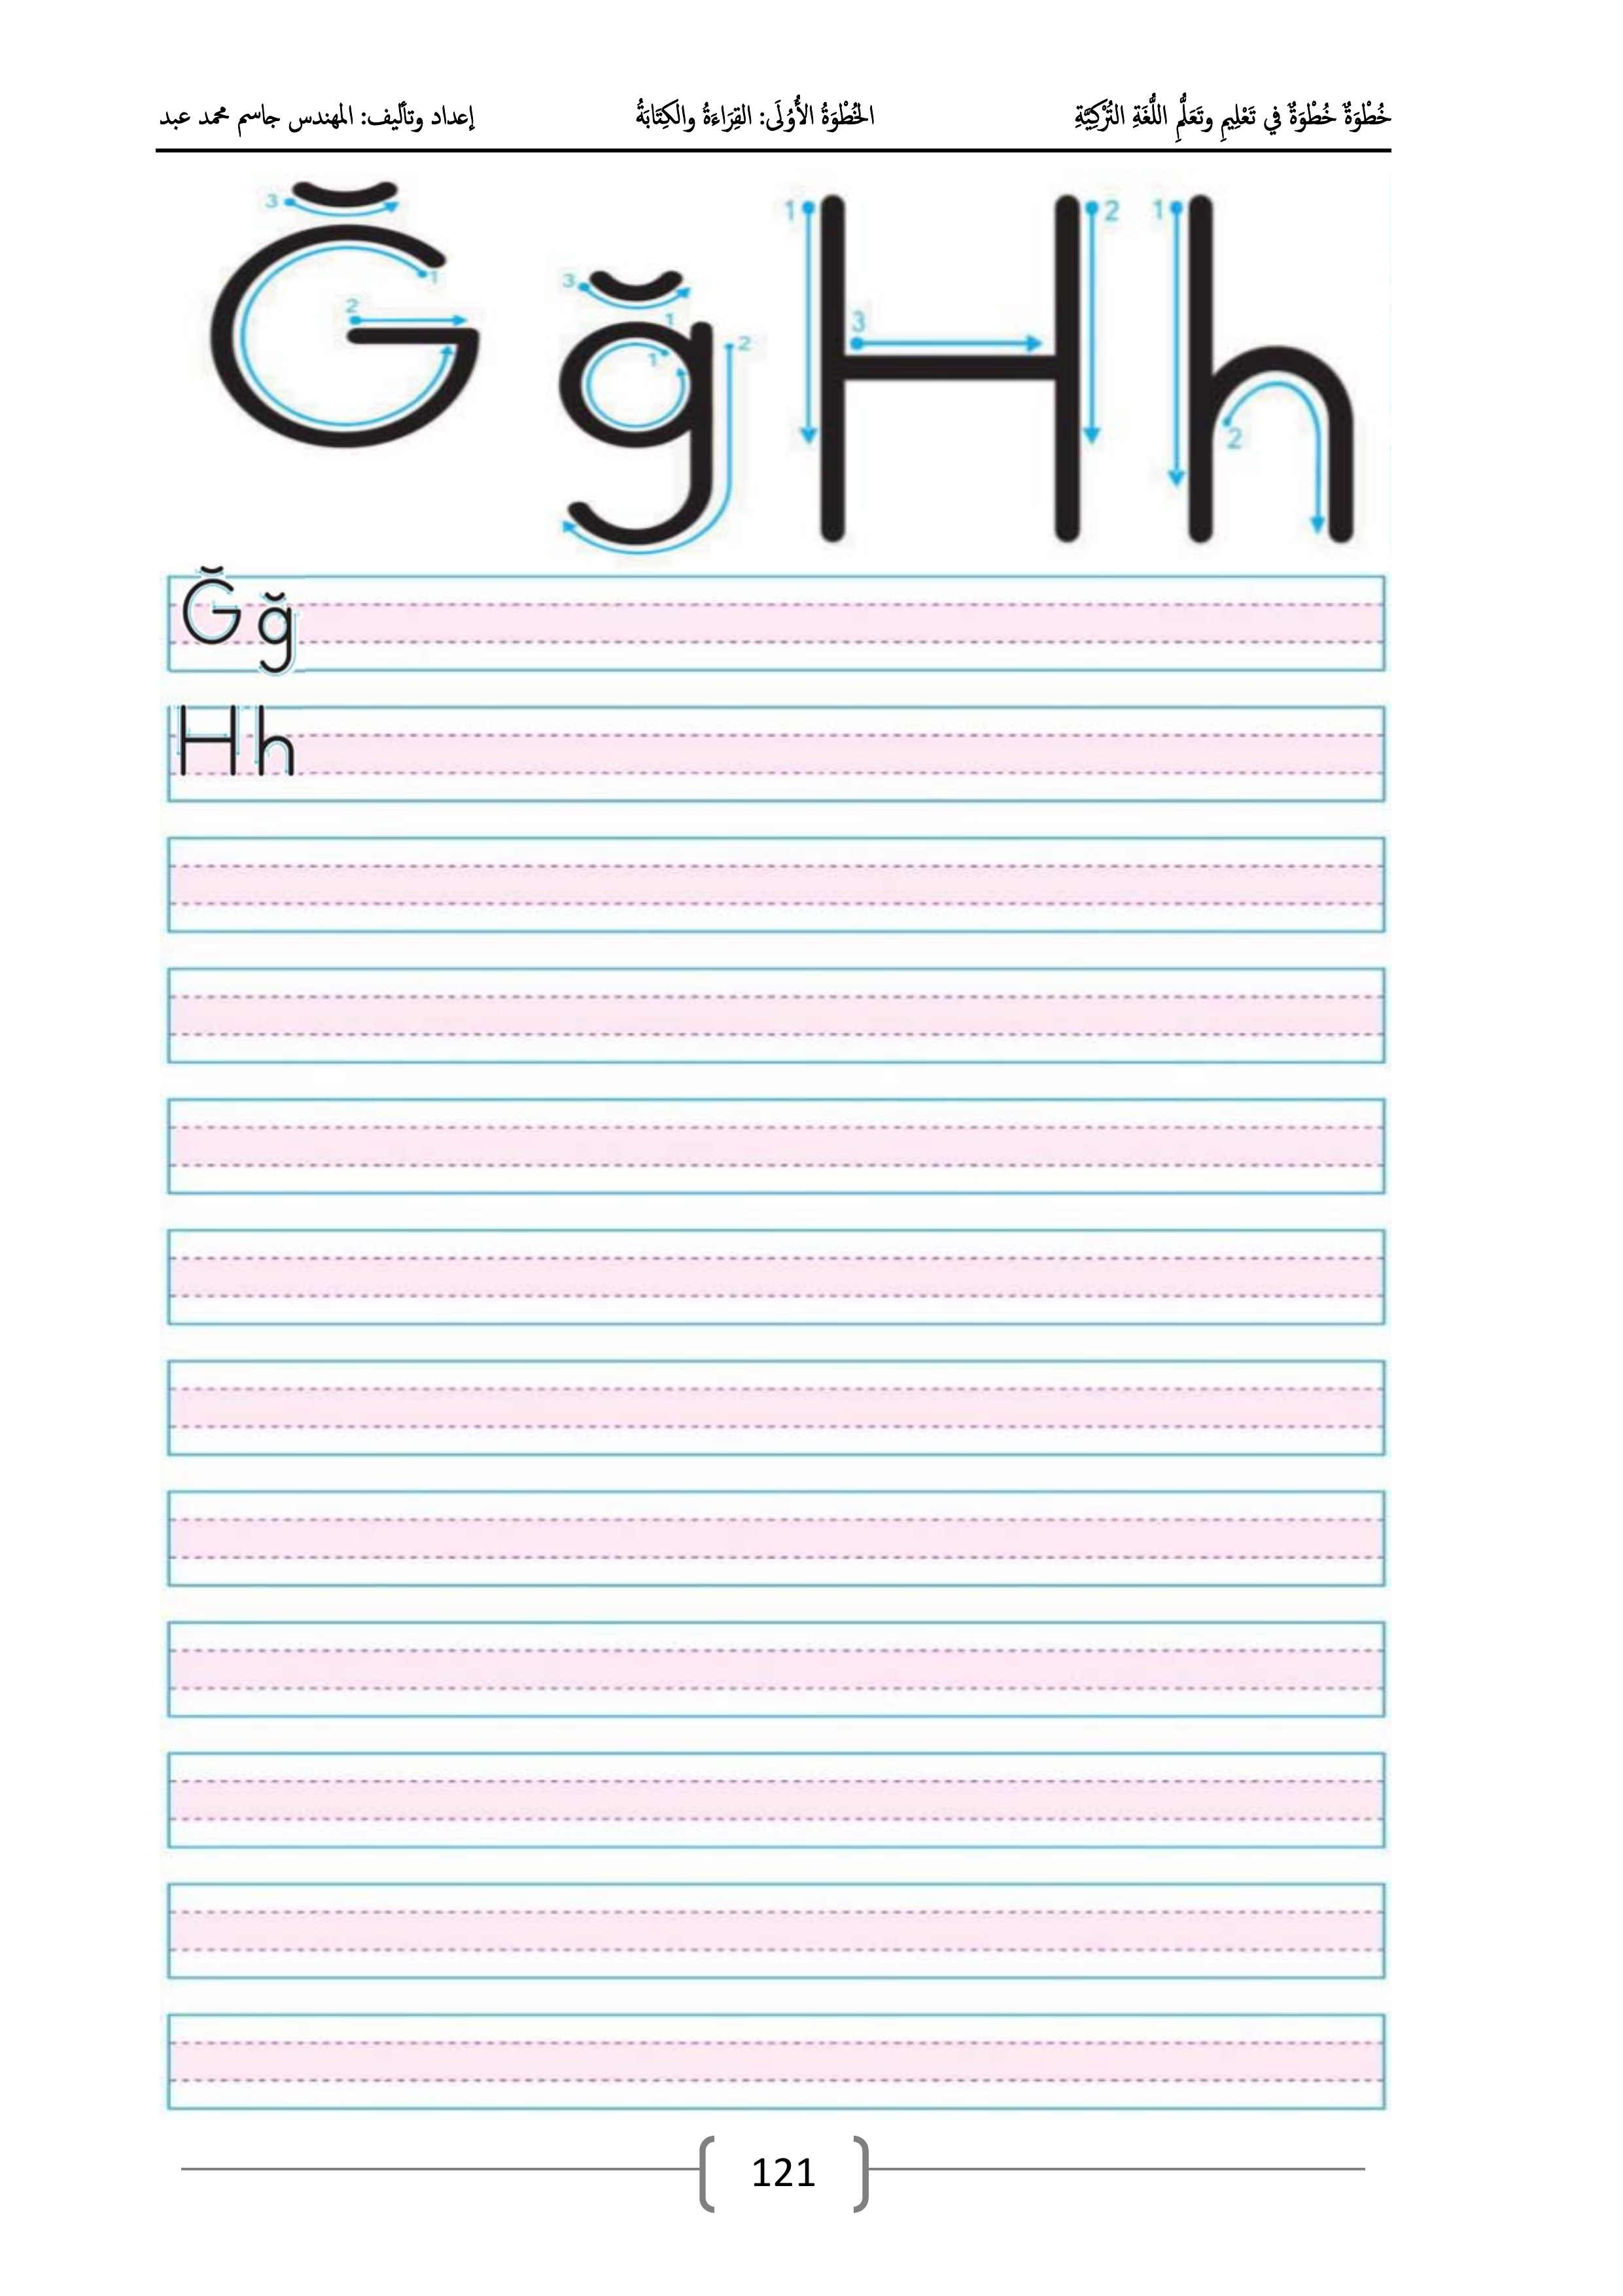 خُطْوَةٌ خُطْوَةٌ في تَعْلِيمِ وتَعَلُّمِ اللُّغَةِ التُّرْكِيَّةِ الخُطْوَةُ الأُوْلَى: القِرَاءَةُ والكِتَابَةُ إعداد وتأليف: المهندس جاسم محمد عبد
Ğ ğ H h
3 1 2
3 1 1 2
1 2 3
1 2
Ğ ğ
H h
121